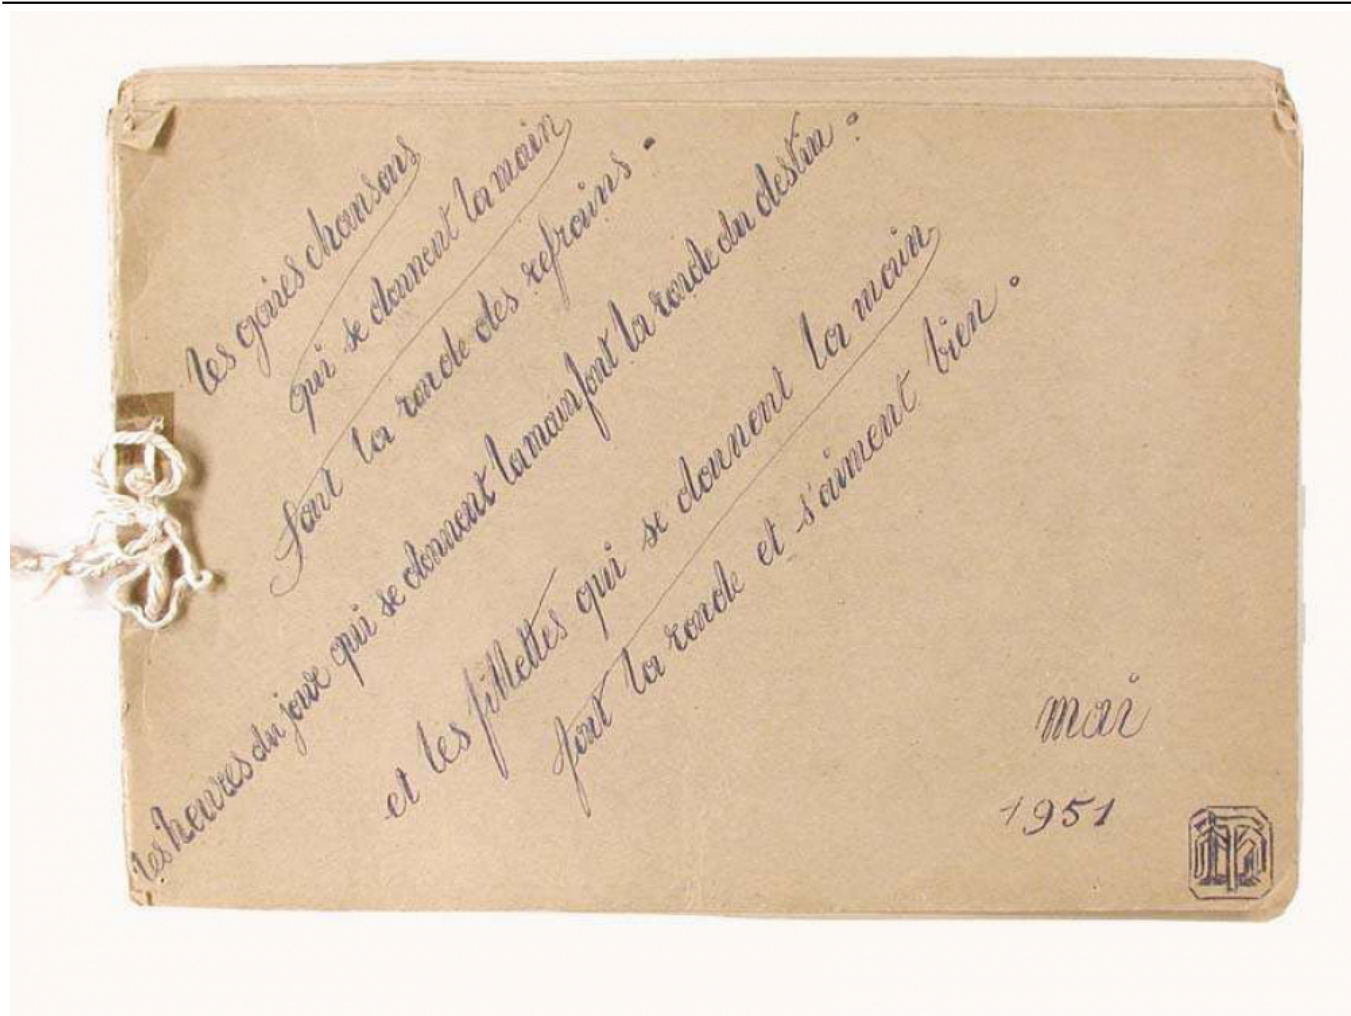 les gaies chansons
qui se donnent la main
font la ronde des refrains.
les heures du jour qui se donnent la main font la ronde du destin :
et les fillettes qui se donnent la main
font la ronde et s'aiment bien.
mai
1951